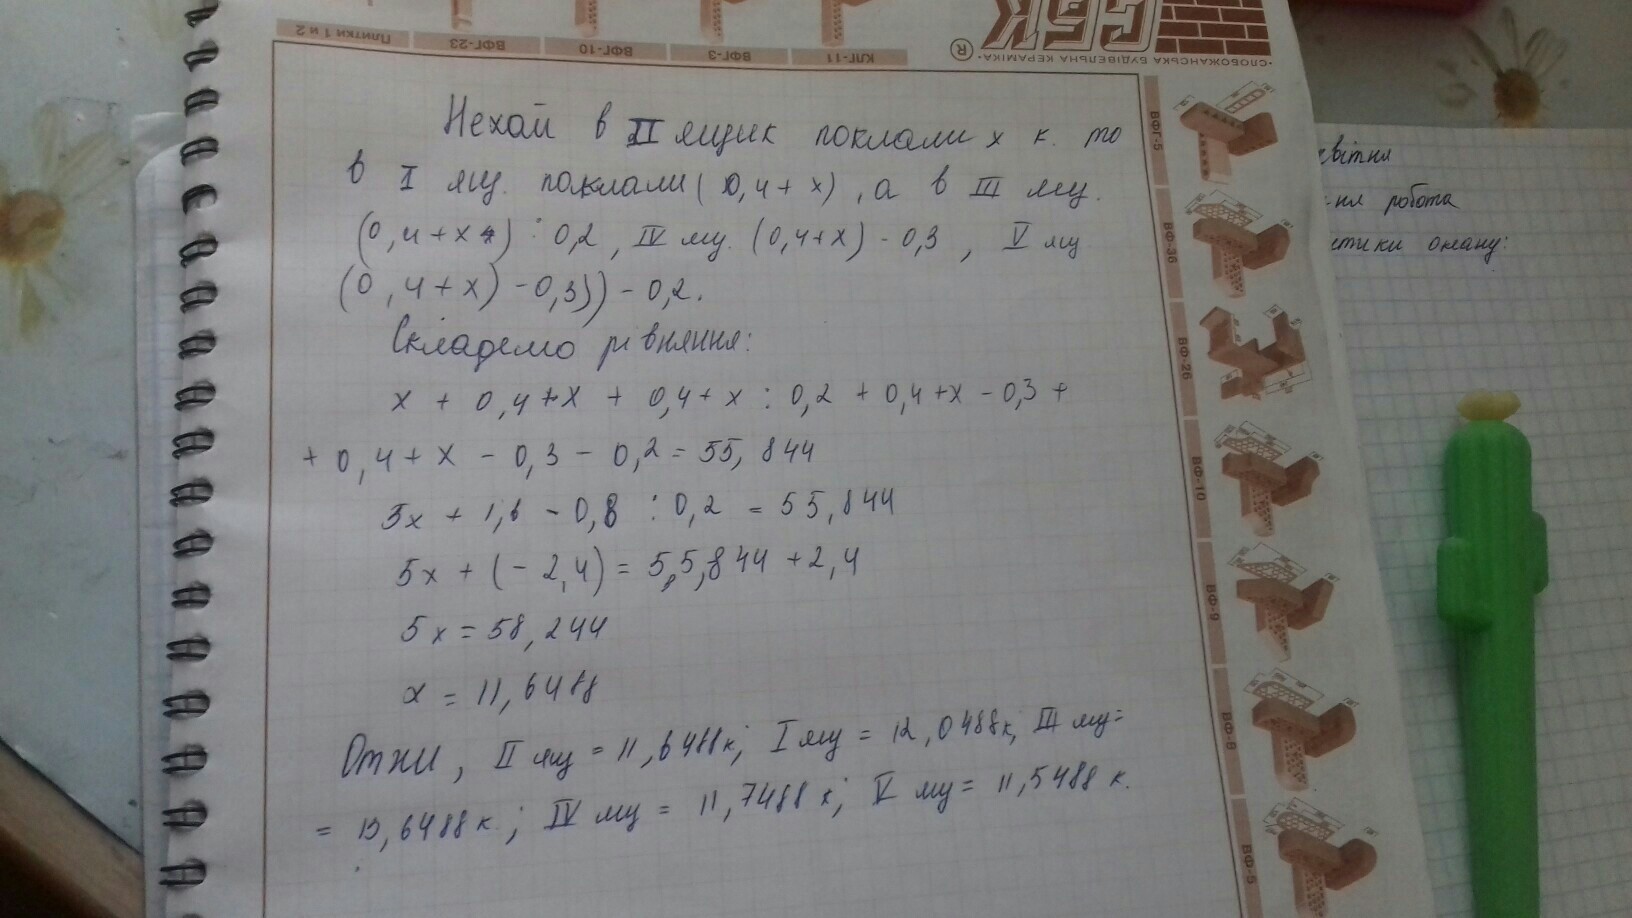 Плитки 1 и 2
ВФГ-23
ВФГ-10
ВФГ-3
КЛГ-11
СБК
®
•СЛОБОЖАНСЬКА БУДІВЕЛЬНА КЕРАМІКА•
Нехай в II ящик поклали х к. то
в I ящ. поклали (0,4 + х), а в III ящ.
(0,4+х) : 0,2, IV ящ. (0,4+х) - 0,3, V ящ
(0,4+х) - 0,3)) - 0,2.
Складемо рівняння:
х + 0,4+х + 0,4+х : 0,2 + 0,4+х - 0,3 +
+ 0,4+х - 0,3 - 0,2 = 55,844
5х + 1,6 - 0,8 : 0,2 = 55,844
5х + (-2,4) = 5,5,844 + 2,4
5х = 58,244
х = 11,6488
Отже, II ящ = 11,6488к; I ящ = 12,0488к; III ящ=
= 13,6488 к.; IV ящ = 11,7488 к; V ящ = 11,5488 к.
ВФГ-5
ВФ-36
ВФ-26
ВФ-10
ВФ-9
ВФ-8
ВФ-5
робота
океану: